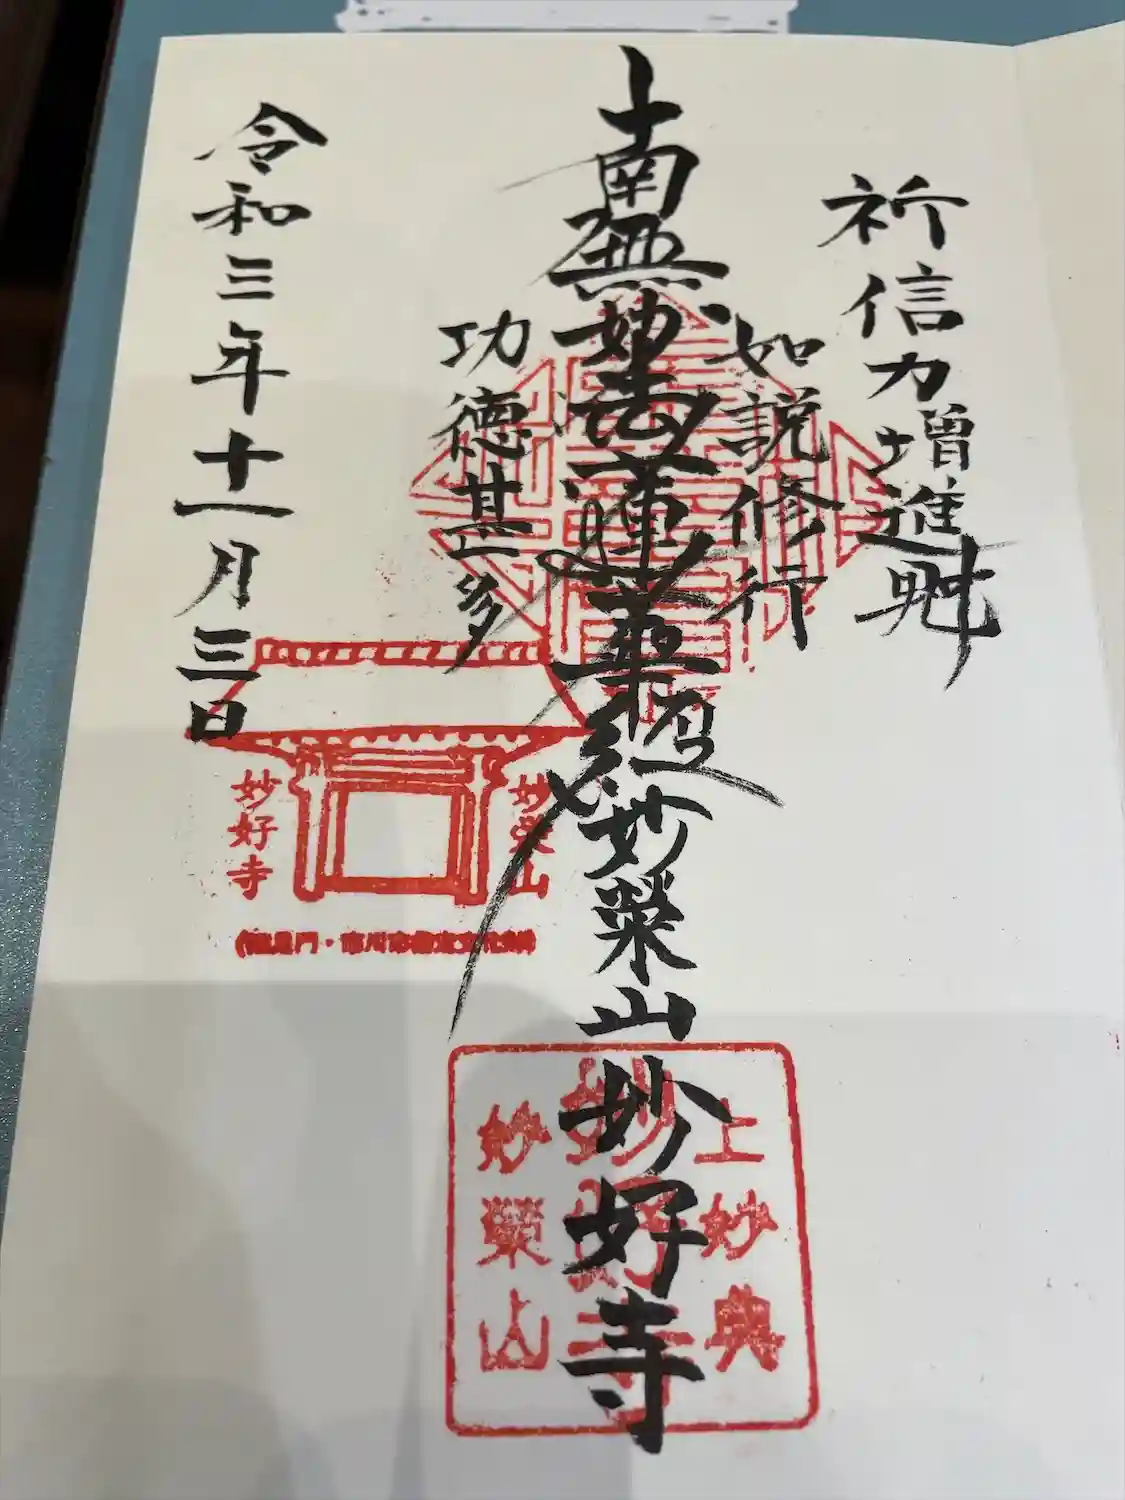 祈信力増進
如説修行
南無妙法蓮華経妙榮山妙好寺
功徳甚多
令和三年十一月三日
妙榮山
妙好寺
上妙典
妙好寺
妙榮山